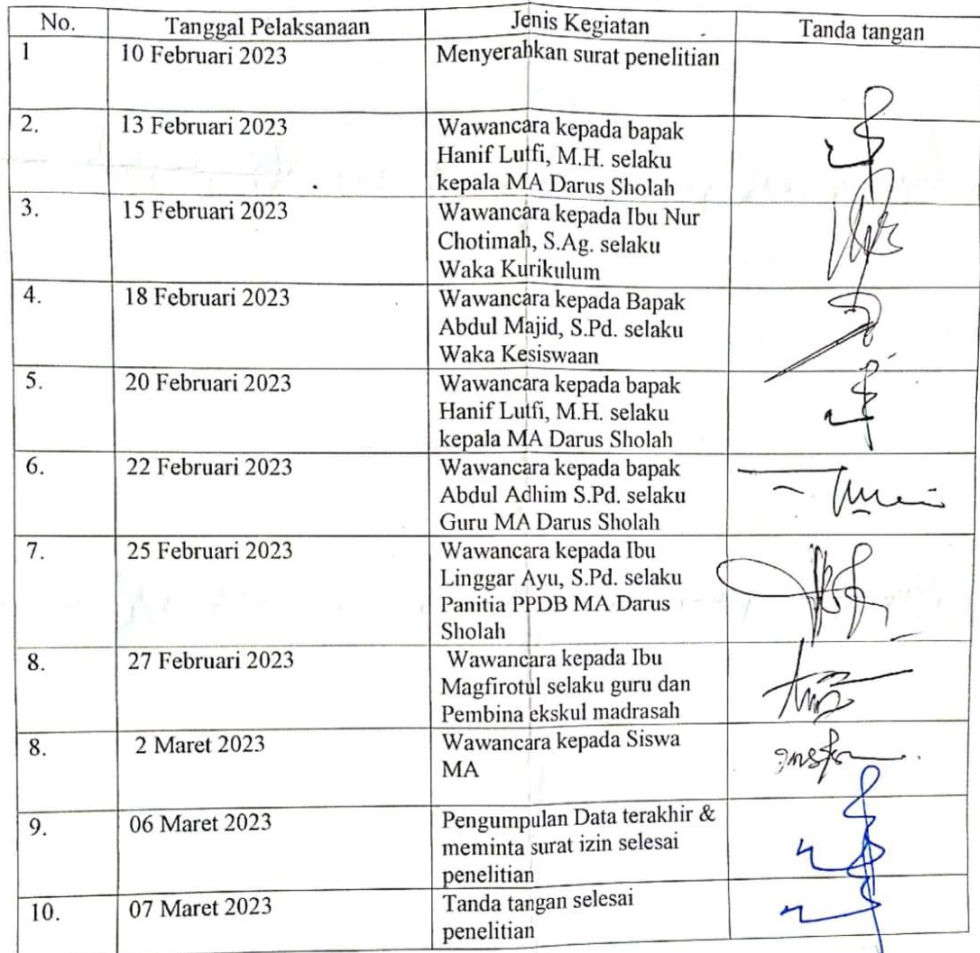 No. Tanggal Pelaksanaan Jenis Kegiatan Tanda tangan
1 10 Februari 2023 Menyerahkan surat penelitian
2. 13 Februari 2023 Wawancara kepada bapak
Hanif Lutfi, M.H. selaku
kepala MA Darus Sholah
3. 15 Februari 2023 Wawancara kepada Ibu Nur
Chotimah, S.Ag. selaku
Waka Kurikulum
4. 18 Februari 2023 Wawancara kepada Bapak
Abdul Majid, S.Pd. selaku
Waka Kesiswaan
5. 20 Februari 2023 Wawancara kepada bapak
Hanif Lutfi, M.H. selaku
kepala MA Darus Sholah
6. 22 Februari 2023 Wawancara kepada bapak
Abdul Adhim S.Pd. selaku
Guru MA Darus Sholah
7. 25 Februari 2023 Wawancara kepada Ibu
Linggar Ayu, S.Pd. selaku
Panitia PPDB MA Darus
Sholah
8. 27 Februari 2023 Wawancara kepada Ibu
Magfirotul selaku guru dan
Pembina ekskul madrasah
8. 2 Maret 2023 Wawancara kepada Siswa
MA
9. 06 Maret 2023 Pengumpulan Data terakhir &
meminta surat izin selesai
penelitian
10. 07 Maret 2023 Tanda tangan selesai
penelitian